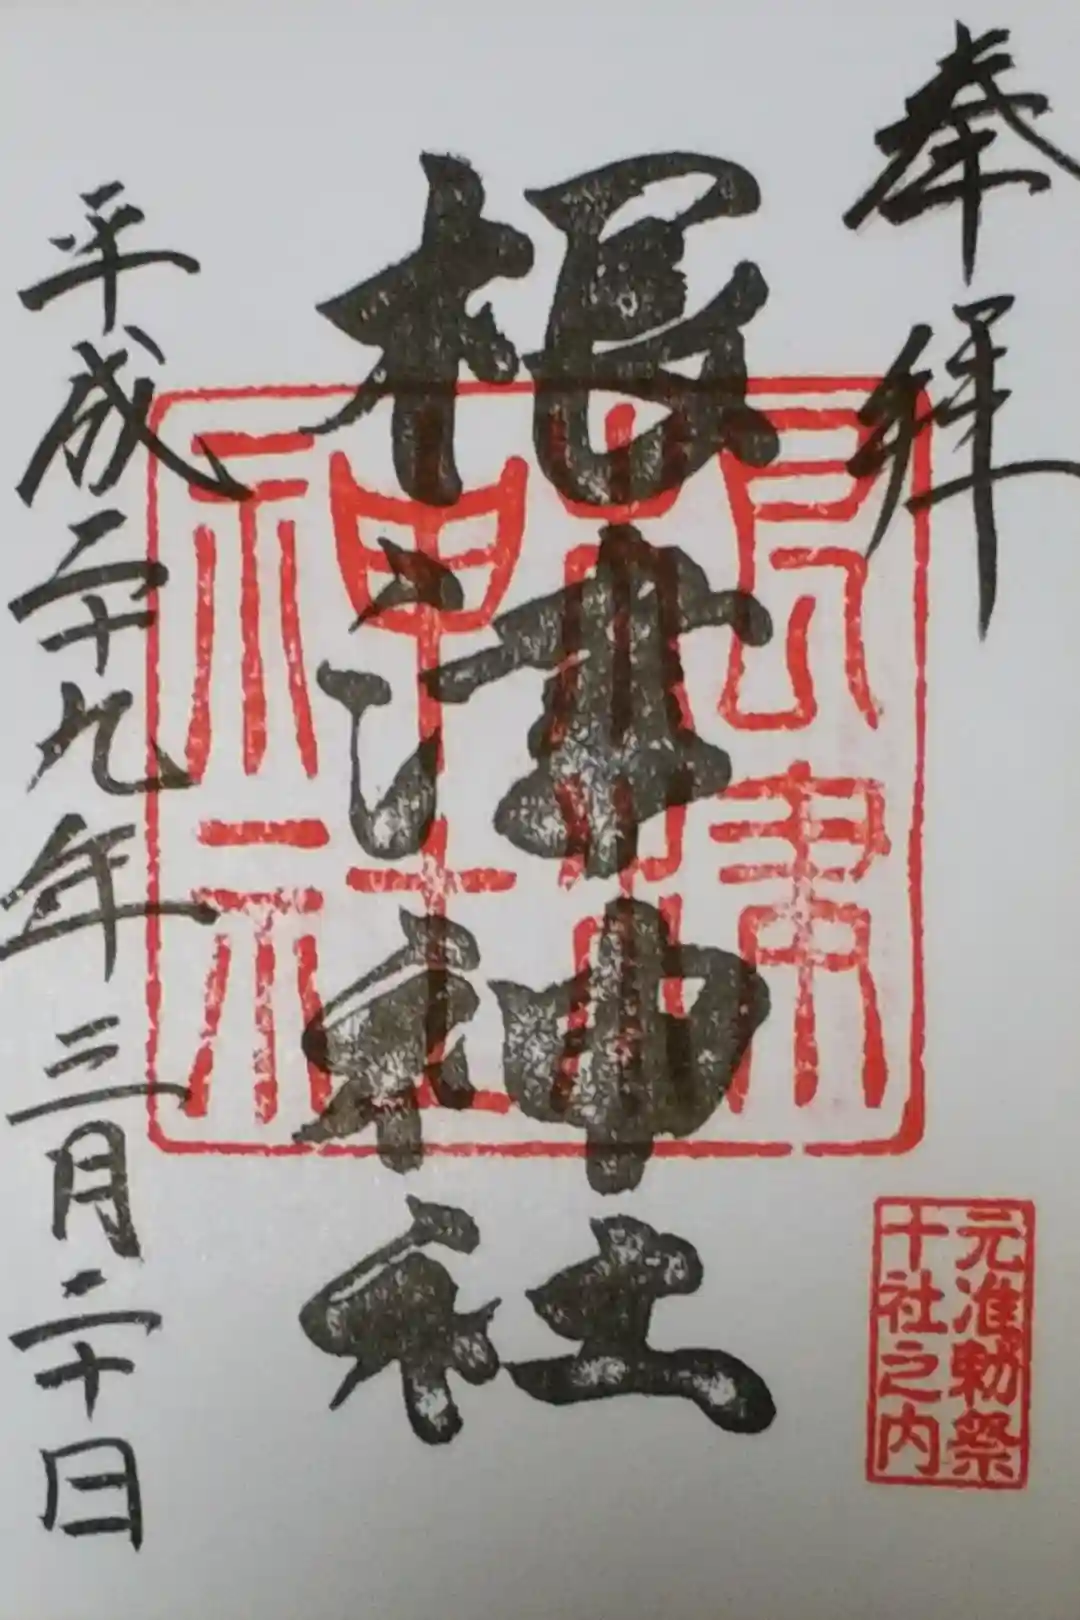 奉拝
元准勅祭
十社之内
根津神社
根津
神社
平成二十九年三月二十日